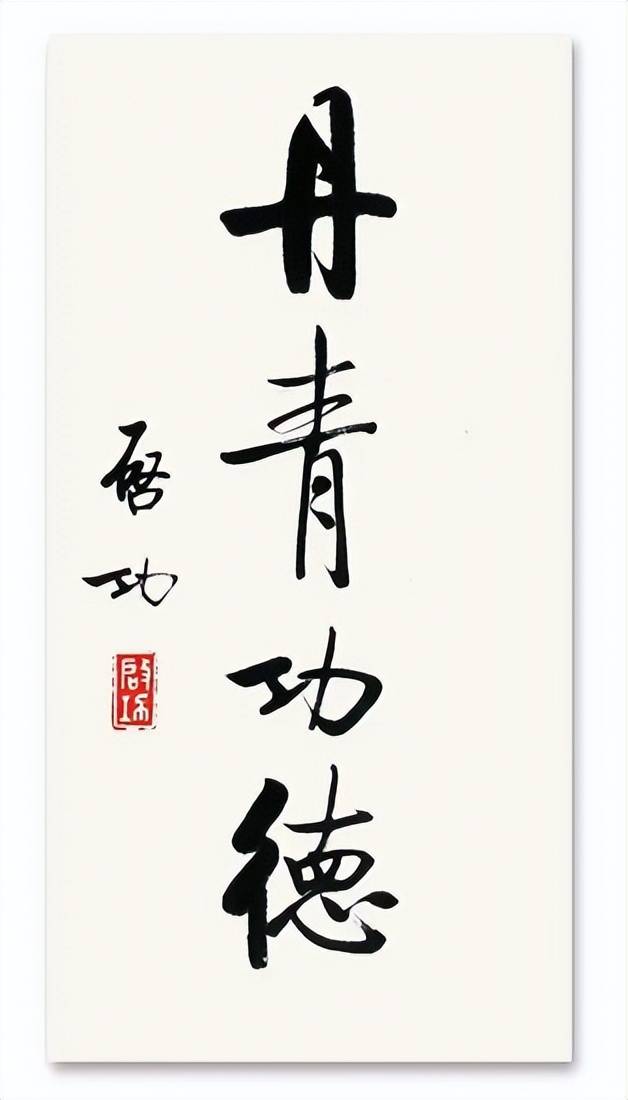 丹青功德
启功
啟功